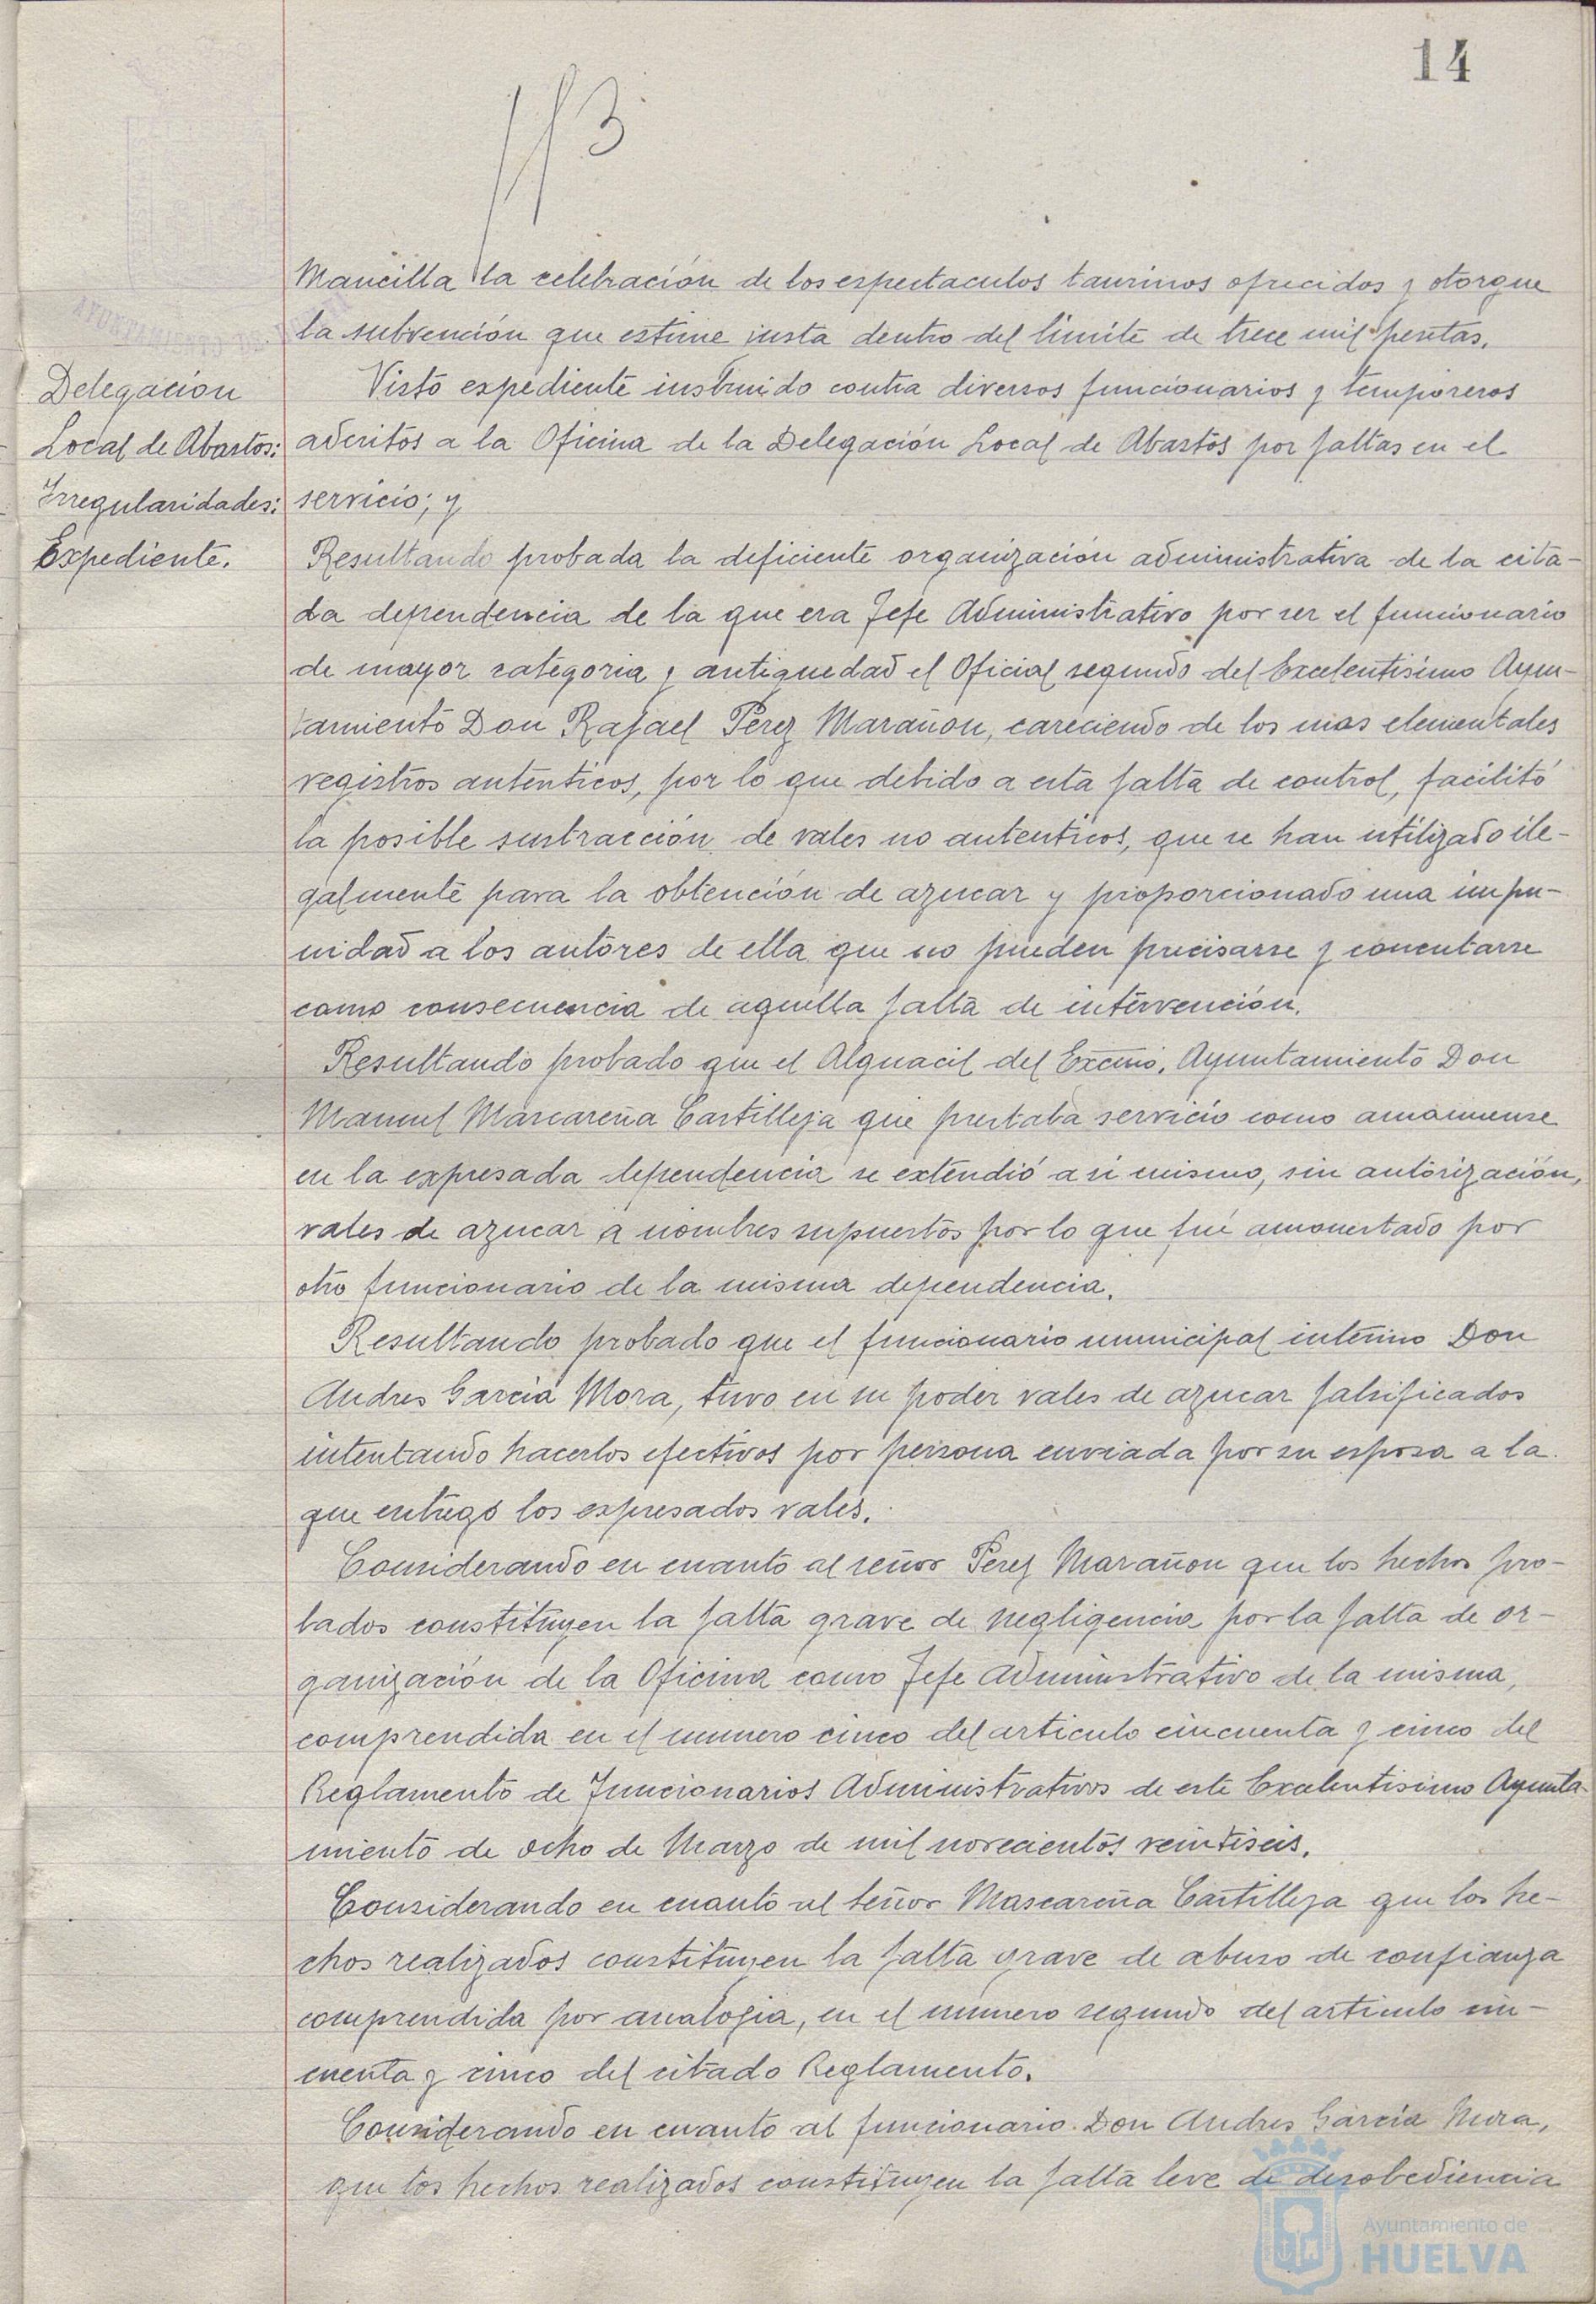 14
113
Mancilla la celebración de los espectaculos taurinos ofrecidos y otorgue
la subvención que estime justa dentro del limite de trece mil pesetas.
Delegación
Local de Abastos:
Irregularidades:
Expediente.
Visto expediente instruido contra diversos funcionarios y temporeros
adscritos a la Oficina de la Delegación Local de Abastos por faltas en el
servicio; y
Resultando probada la deficiente organización administrativa de la cita-
da dependencia de la que era Jefe Administrativo por ser el funcionario
de mayor categoria y antiguedad el Oficial segundo del Excelentisimo Ayun-
tamiento Don Rafael Pérez Marañon, careciendo de los mas elementales
registros autenticos, por lo que debido a esta falta de control, facilitó
la posible sustracción de vales no autenticos, que se han utilizado ile-
galmente para la obtención de azucar y proporcionado una impu-
nidad a los autores de ella que no pueden precisarse y
como consecuencia de aquella falta de intervención.
Resultando probado que el Alguacil del Excmo. Ayuntamiento Don
Manuel Mascareña Castilleja que prestaba servicio como amanuense
en la expresada dependencia se extendió a si mismo, sin autorización,
vales de azucar a nombres supuestos por lo que fué amonestado por
otro funcionario de la misma dependencia.
Resultando probado que el funcionario municipal interino Don
Andres Garcia Mora, tuvo en su poder vales de azucar falsificados
intentando hacerlos efectivos por persona enviada por su esposa a la
que entregó los expresados vales.
Considerando en cuanto al señor Perez Marañon que los hechos pro-
bados constituyen la falta grave de negligencia por la falta de or-
ganización de la Oficina como Jefe Administrativo de la misma,
comprendida en el numero cinco del articulo cincuenta y cinco del
Reglamento de Funcionarios Administrativos de este Excelentisimo Ayunta-
miento de ocho de Marzo de mil novecientos veintiseis.
Considerando en cuanto al señor Mascareña Castilleja que los he-
chos realizados constituyen la falta grave de abuso de confianza
comprendida por analogia, en el numero segundo del articulo cin-
cuenta y cinco del citado Reglamento.
Considerando en cuanto al funcionario Don Andres Garcia Mora,
que los hechos realizados constituyen la falta leve de desobediencia
Ayuntamiento de
HUELVA